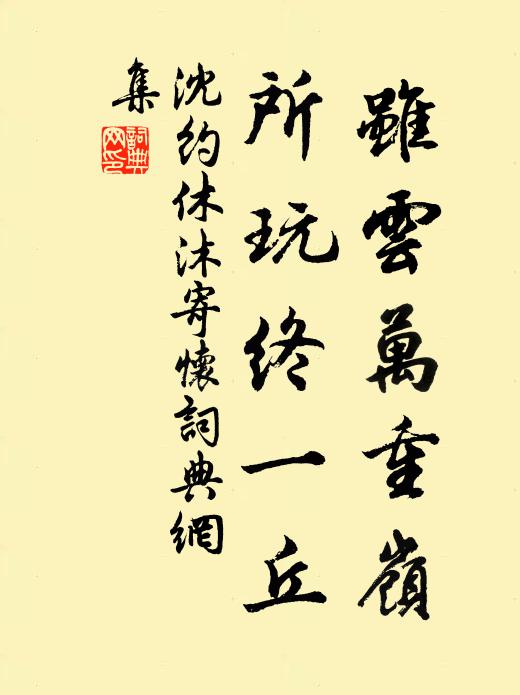 雖雲萬重嶺
所玩終一丘
沈約休沐寄懷詞典網
集
詞典
网印